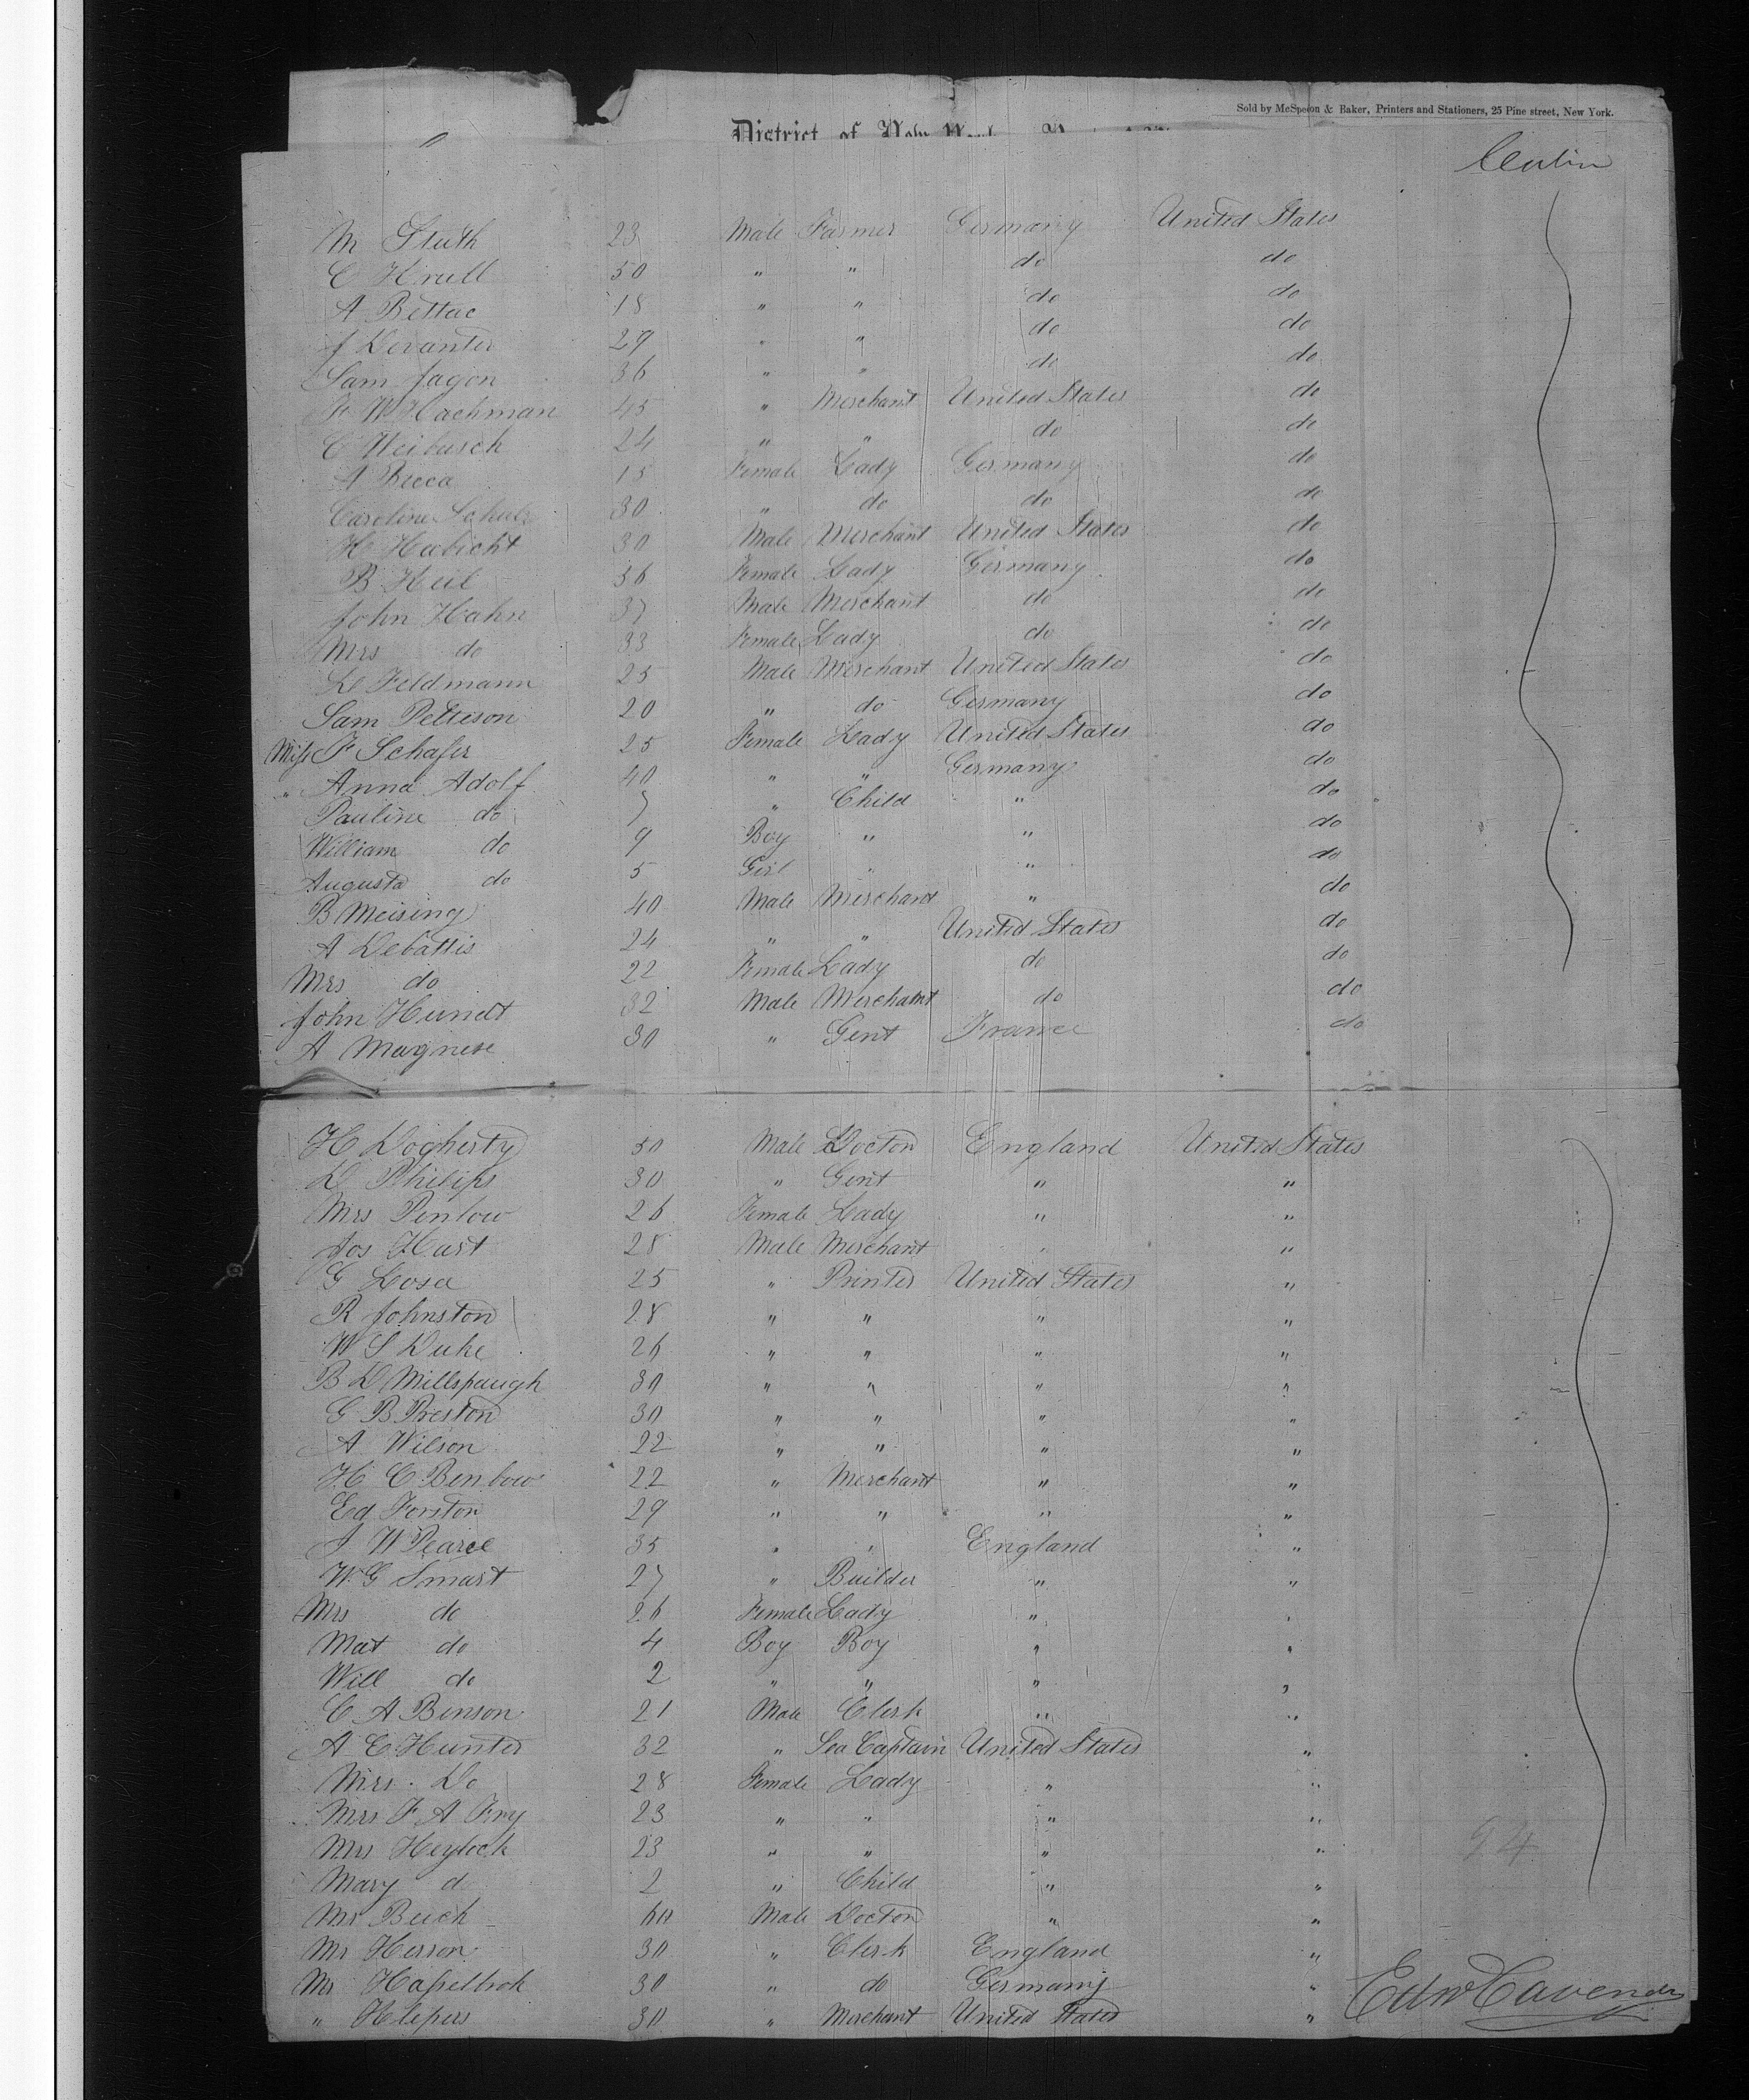 Sold by McSpedon & Baker, Printers and Stationers, 25 Pine street, New York.
District of New York
M Sluth 23 Male Farmer Germany United States
C Krull 50 " " do do
A Bettac 18 " " do do
J Devanter 29 " " do do
Sam Jagon 36 " " do do
W Hachman 45 " Merchant United States do
C Weibusch 24 " " do do
A Becca 15 Female Lady Germany do
Caroline Schulz 30 " do do do
H Habicht 30 Male Merchant United States do
B Heil 36 Female Lady Germany do
John Hahn 37 Male Merchant do do
Mrs do 33 Female Lady do do
D Feldmann 25 Male Merchant United States do
Sam Petteson 20 " do Germany do
Miss F Schafer 25 Female Lady United States do
" Anna Adolf 40 " " Germany do
Pauline do 7 " Child " do
William do 9 Boy " " do
Augusta do 5 Girl " " do
B Meising 40 Male Merchant " do
A Debattis 24 " " United States do
Mrs do 22 Female Lady do do
John Hundt 32 Male Merchant do do
A Magnese 30 " Gent France do
H Dogherty 50 Male Doctor England United States
D Philips 30 " Gent " "
Mrs Penlow 26 Female Lady " "
Jos Hart 28 Male Merchant " "
G Losa 25 " Printer United States "
R Johnston 28 " " " "
W S Duke 26 " " " "
B D Millspaugh 30 " " " "
G B Preston 30 " " " "
A Wilson 22 " " " "
H C Benbow 22 " Merchant " "
Ed Forston 29 " " " "
J W Pearce 35 " " England "
W G Smart 27 " Builder " "
Mrs do 26 Female Lady " "
Mat do 4 Boy Boy " "
Will do 2 " " " "
C A Benson 21 Male Clerk " "
A C Hunter 32 " Sea Captain United States "
Mrs. Do 28 Female Lady " "
Mrs F A Fry 23 " " " "
Mrs Heylock 23 " " " "
94
Mary d 2 " Child " "
Mr Buck 60 Male Doctor " "
Mr Herson 30 " Clerk England "
Mr Hasselbrok 30 " do Germany "
" Helpers 30 " Merchant United States "
Edw Cavendy